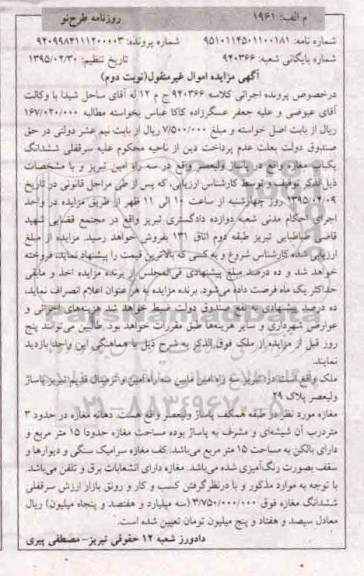 م الف: ۱۹۶۱ روزنامه طرح‌نو
شماره نامه: ۹۵۱۰۱۱۴۵۰۱۱۰۰۱۸۱ شماره پرونده: ۹۴۰۹۹۸۴۱۱۱۲۰۰۰۰۳
شماره بایگانی شعبه: ۹۴۰۳۶۶ تاریخ تنظیم: ۱۳۹۵/۰۲/۳۰
آگهی مزایده اموال غیرمنقول(نوبت دوم)
درخصوص پرونده اجرائی کلاسه ۹۴۰۳۶۶ ج م ۱۲ له آقای ساحل شیدا با وکالت
آقای عیوضی و علیه جعفر عسگرزاده کاکا عباس بخواسته مطالبه ۱۶۷/۰۲۰/۰۰۰
ریال از بابت اصل خواسته و مبلغ ۷/۵۰۰/۰۰۰ ریال از بابت نیم عشر دولتی در حق
صندوق دولت بعلت عدم پرداخت دین از ناحیه محکوم علیه سرقفلی ششدانگ
یکباب مغازه واقع در پاساژ ولیعصر واقع در سه راه امین تبریز و با مشخصات
ذیل الذکر توقیف و توسط کارشناس ارزیابی، که پس از طی مراحل قانونی در تاریخ
۱۳۹۵/۰۴/۰۹ روز چهارشنبه از ساعت ۱۰ الی ۱۱ ظهر از طریق مزایده در واحد
اجرای احکام مدنی شعبه دوازده دادگستری تبریز واقع در مجتمع قضایی شهید
قاضی طباطبایی تبریز طبقه دوم اتاق ۱۳۱ بفروش خواهد رسید. مزایده از مبلغ
ارزیابی شده کارشناس شروع و به کسی که بالاترین قیمت را پیشنهاد نماید، فروخته
خواهد شد و ده درصد مبلغ پیشنهادی فی‌المجلس از برنده مزایده اخذ و مابقی
حداکثر یک ماه فرصت داده می‌شود. برنده مزایده به هر عنوان اعلام انصراف نماید،
ده درصد پیشنهادی به نفع صندوق دولت ضبط خواهد شد هزینه‌های اجرائی و
عوارض شهرداری و سایر هزینه‌ها طبق مقررات خواهد بود. طالبین می‌توانند پنج
روز قبل از مزایده از ملک فوق الذکر به شرح ذیل با هماهنگی این واحد بازدید
نمایند.
ملک واقع است در: تبریز سه راه امین مابین سه راه امین و ترمینال قدیم تبریز پاساژ
ولیعصر پلاک
مغازه مورد نظر در طبقه همکف پاساژ ولیعصر واقع هست. دهانه مغازه در حدود ۳
متر درب آن شیشه‌ای و مشرف به پاساژ بوده مساحت مغازه حدودا ۱۵ متر مربع و
دارای بالکن به مساحت ۱۵ متر مربع می‌باشد. کف مغازه سرامیک سنگی و دیوارها و
سقف بصورت رنگ‌آمیزی شده می‌باشد. مغازه دارای انشعابات برق و تلفن می‌باشد.
با توجه به موارد مذکور و با درنظرگرفتن کسب و کار و رونق بازار ارزش سرقفلی
ششدانگ مغازه فوق ۳/۷۵۰/۰۰۰/۰۰۰ (سه میلیارد و هفتصد و پنجاه میلیون) ریال
معادل سیصد و هفتاد و پنج میلیون تومان تعیین شده است.
دادورز شعبه ۱۲ حقوقی تبریز- مصطفی پیری